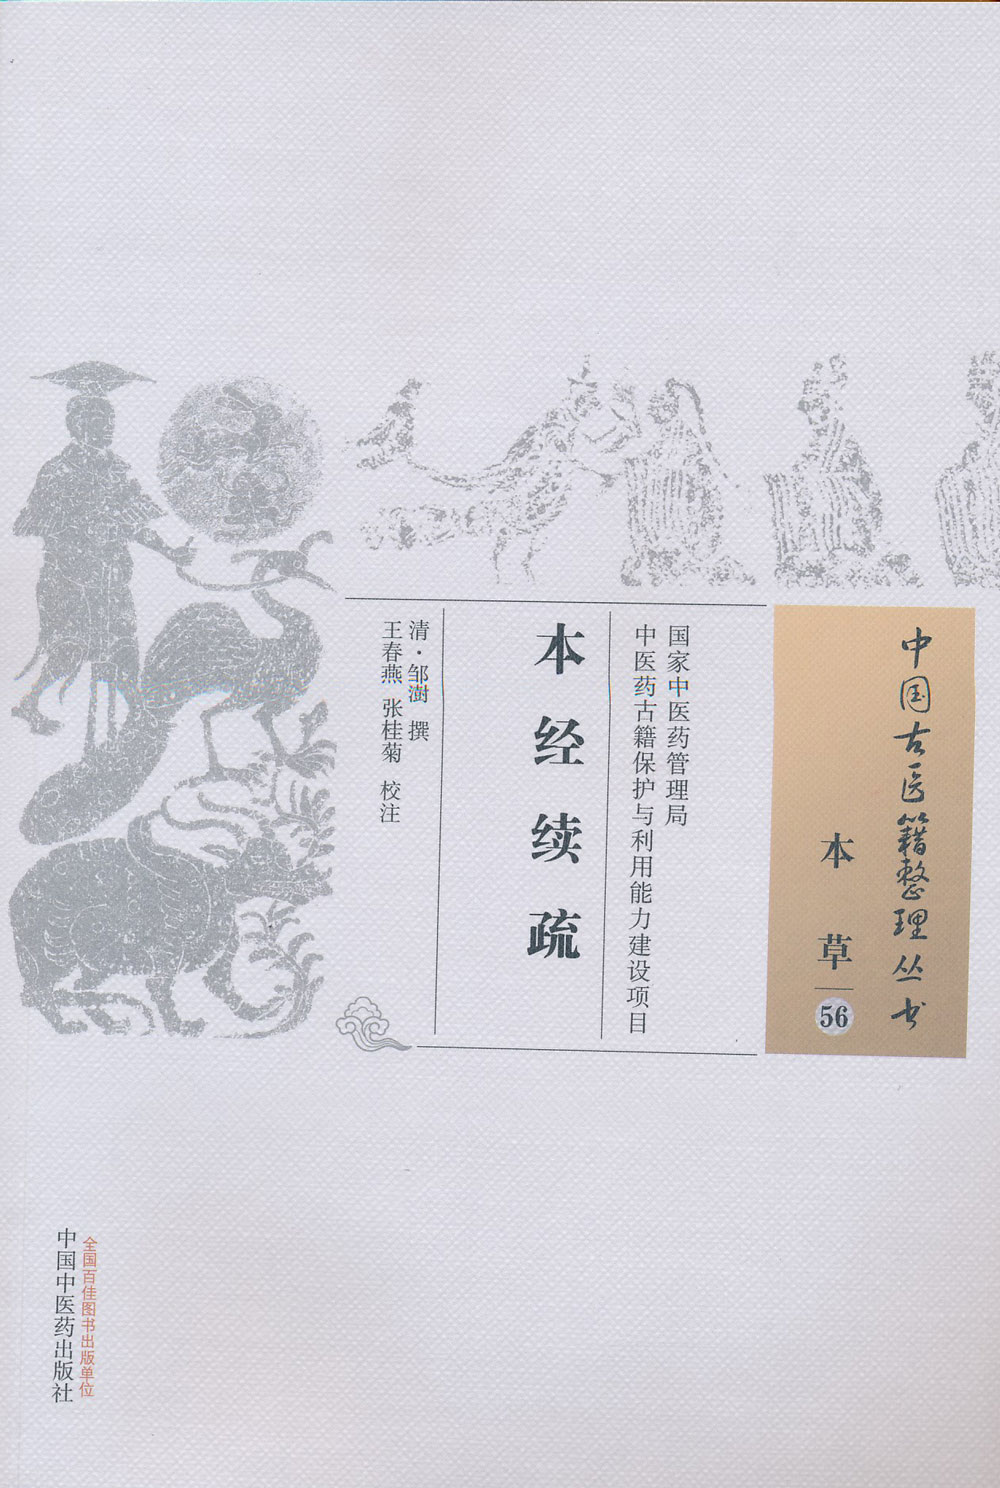 中国古医籍整理丛书
本草
56
国家中医药管理局
中医药古籍保护与利用能力建设项目
本经续疏
清·邹澍 撰
王春燕 张桂菊 校注
全国百佳图书出版单位
中国中医药出版社